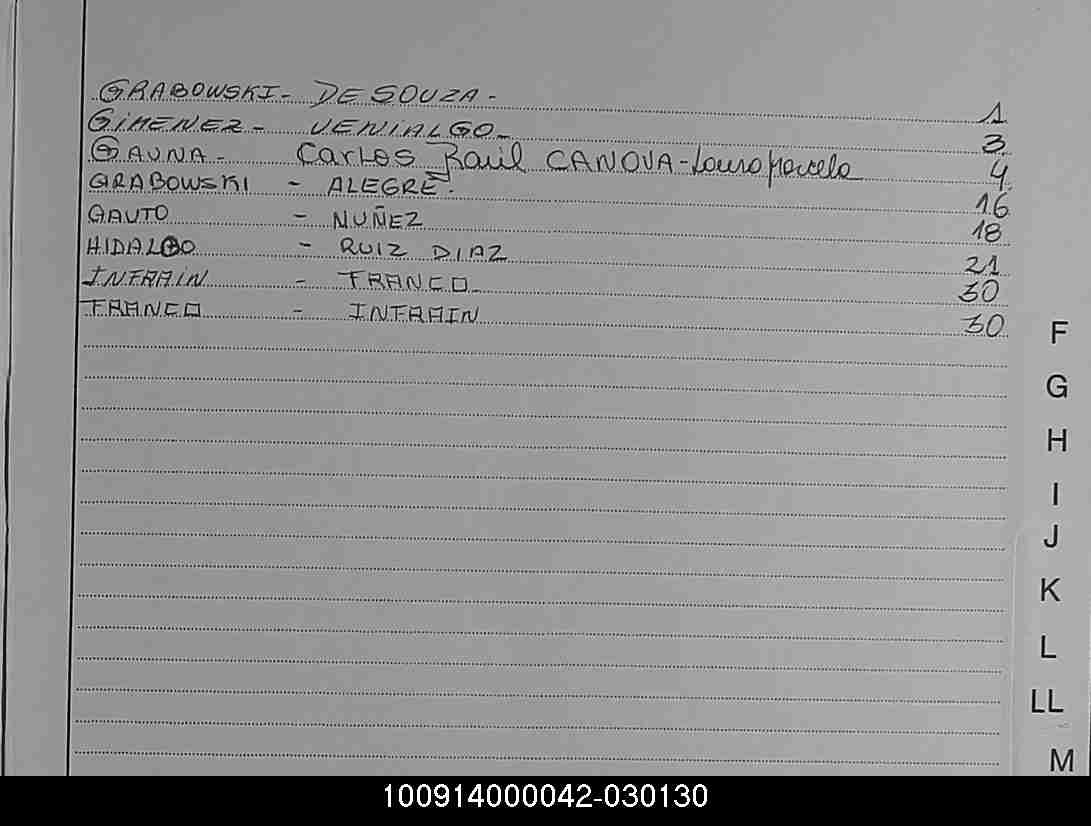 GRABOWSKI - DE SOUZA - 1
GIMENEZ - VENIALGO - 3
GAUNA - Carlos Raúl CANOVA - Laura Marcela 4
GRABOWSKI - ALEGRE. 16
GAUTO - NUÑEZ 18
HIDALGO - RUIZ DIAZ 21
INFRAIN - FRANCO 30
FRANCO - INFRAIN 30
F
G
H
I
J
K
L
LL
M
100914000042-030130